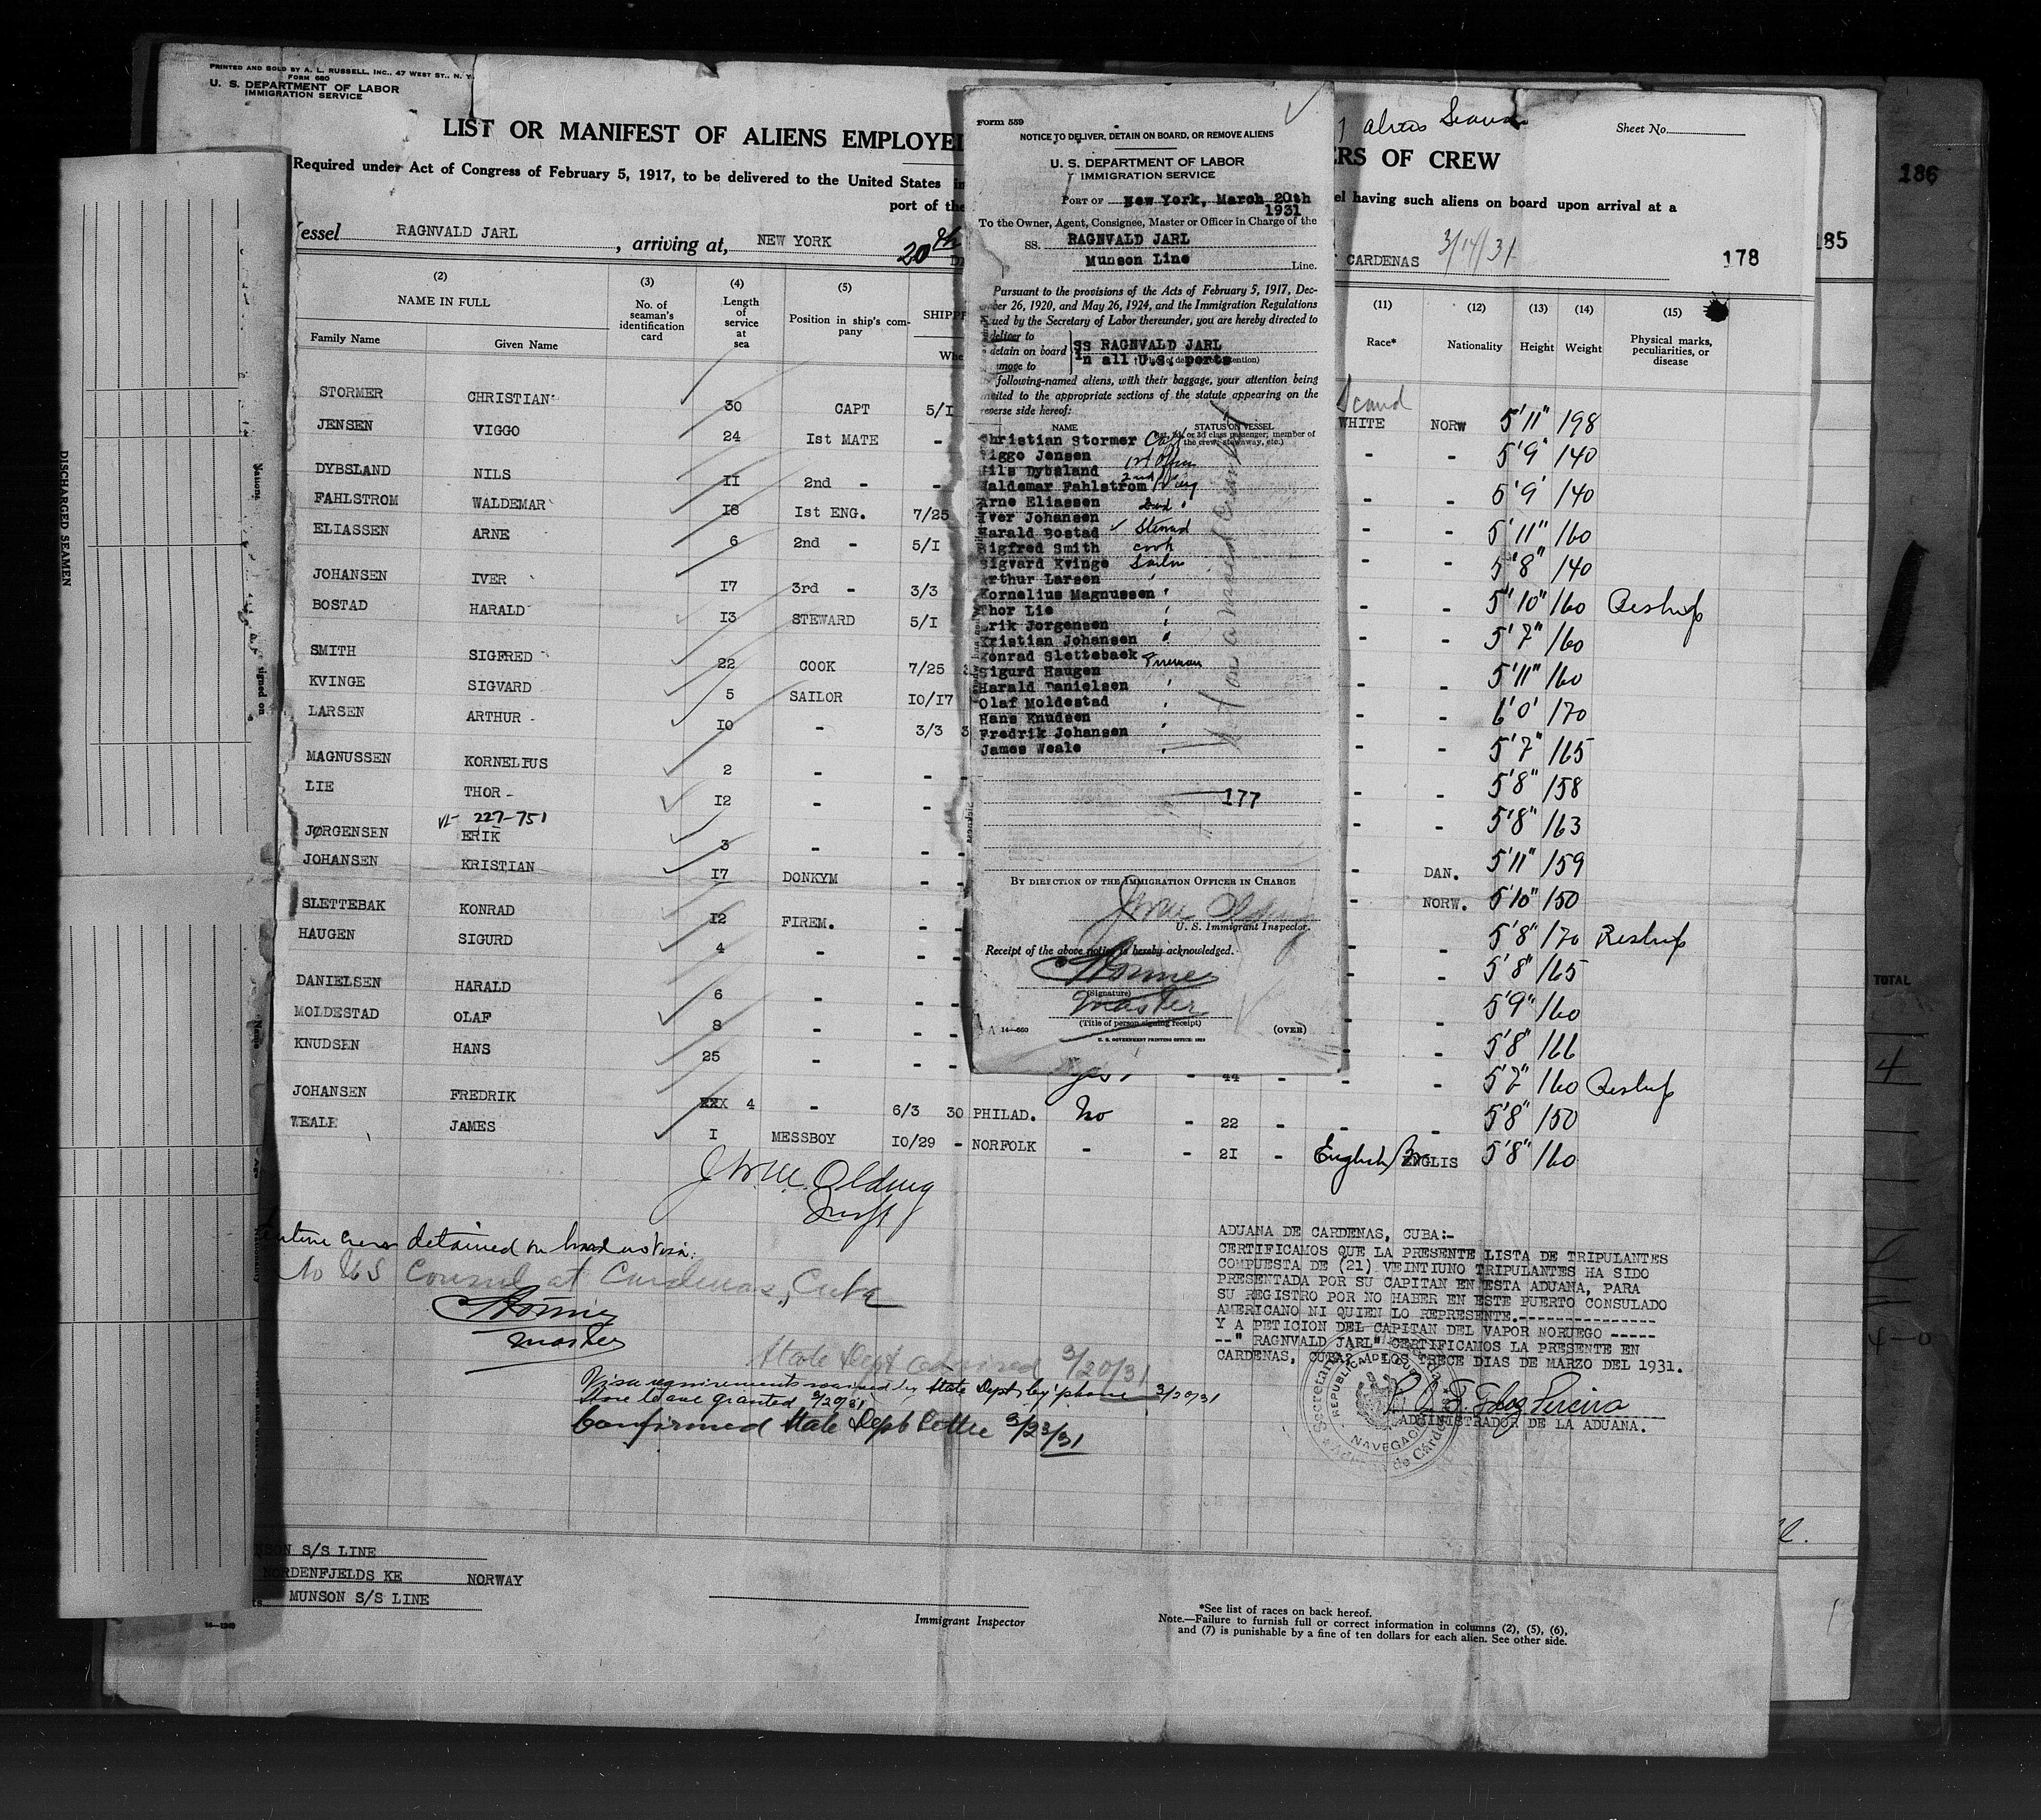 PRINTED AND SOLD BY A. L. RUSSELL, INC., 47 WEST ST., N. Y.
FORM 680
U. S. DEPARTMENT OF LABOR
IMMIGRATION SERVICE
LIST OR MANIFEST OF ALIENS EMPLOYE
ERS OF CREW
Sheet No.
Required under Act of Congress of February 5, 1917, to be delivered to the United States
el having such aliens on board upon arrival at a
port of the
essel RAGNVALD JARL , arriving at, NEW YORK 20th
CARDENAS 3/14/31
178
185
186
(2) (3) (4) (5) (11) (12) (13) (14) (15)
NAME IN FULL
Family Name Given Name
No. of seaman's identification card
Length of service at sea
Position in ship's company
SHIPP
Whe
Race* Nationality Height Weight
Physical marks, peculiarities, or disease
Scand
STORMER CHRISTIAN 30 CAPT 5/1 WHITE NORW 5'11" 198
JENSEN VIGGO 24 Ist MATE - - - 5'9" 140
DYBSLAND NILS II 2nd - - - - 5'9" 140
FAHLSTROM WALDEMAR I8 Ist ENG. 7/25 - - 5'11" 160
ELIASSEN ARNE 6 2nd - 5/I - - 5'8" 140
JOHANSEN IVER I7 3rd - 3/3 - - 5'10" 160
BOSTAD HARALD I3 STEWARD 5/I - - 5'7" 160
SMITH SIGFRED 22 COOK 7/25 - - 5'11" 160
KVINGE SIGVARD 5 SAILOR IO/I7 - - 6'0" 170
LARSEN ARTHUR IO - 3/3 3 - - 5'7" 165
MAGNUSSEN KORNELIUS 2 - - - - 5'8" 158
LIE THOR I2 - - - - 5'8" 163
227-751
JØRGENSEN ERIK 3 - - - DAN. 5'11" 159
JOHANSEN KRISTIAN I7 DONKYM - - NORW. 5'10" 150
SLETTEBAK KONRAD I2 FIREM. - - - 5'8" 170
HAUGEN SIGURD 4 - - - - 5'8" 165
DANIELSEN HARALD 6 - - - - 5'9" 160
MOLDESTAD OLAF 8 - - - - 5'8" 166
KNUDSEN HANS 25 - - yes - 44 - - - 5'7" 160
JOHANSEN FREDRIK XXX 4 - 6/3 30 PHILAD. No - 22 - - - 5'8" 150
WEALE JAMES I MESSBOY IO/29 - NORFOLK - - 2I - English ENGLIS 5'8" 160
Form 559
NOTICE TO DELIVER, DETAIN ON BOARD, OR REMOVE ALIENS
U. S. DEPARTMENT OF LABOR
IMMIGRATION SERVICE
PORT OF New York, March 20th
1931
To the Owner, Agent, Consignee, Master or Officer in Charge of the
SS. RAGNVALD JARL
Munson Line Line.
Pursuant to the provisions of the Acts of February 5, 1917, Dec-
ber 26, 1920, and May 26, 1924, and the Immigration Regulations
ued by the Secretary of Labor thereunder, you are hereby directed to
deliver to
detain on board SS RAGNVALD JARL
in all U.S. ports
move to
following-named aliens, with their baggage, your attention being
ited to the appropriate sections of the statute appearing on the
reverse side hereof:
NAME STATUS ON VESSEL
Christian Stormer
iggo Jensen
ils Dybsland
aldemar Fahlstrom
Arne Eliassen
Iver Johansen
Harald Bostad Steward
Sigfred Smith cook
Sigvard Kvinge Sailor
Arthur Larsen
Kornelius Magnussen
Thor Lie
Erik Jorgensen
Kristian Johansen
Konrad Slettebaek Fireman
Sigurd Haugen
Harald Danielsen
Olaf Moldestad
Hans Knudsen
Fredrik Johansen
James Weale
177
BY DIRECTION OF THE IMMIGRATION OFFICER IN CHARGE
U. S. Immigrant Inspector.
Receipt of the above notice is hereby acknowledged.
(Signature)
Master
(Title of person signing receipt)
14—660
(OVER)
U. S. GOVERNMENT PRINTING OFFICE: 1929
DISCHARGED SEAMEN
signed on
TOTAL
4
4-0
Olding
entire crew detained on board no visa.
No US Consul at Cardenas, Cuba
Master
State Dept advised 3/20/31
Visa requirements waived by State Dept by phone 3/20/31
Shore leave granted 3/20/31
Confirmed State Dept Letter 3/23/31
ADUANA DE CARDENAS, CUBA:-
CERTIFICAMOS QUE LA PRESENTE LISTA DE TRIPULANTES
COMPUESTA DE (21) VEINTIUNO TRIPULANTES HA SIDO
PRESENTADA POR SU CAPITAN EN ESTA ADUANA, PARA
SU REGISTRO POR NO HABER EN ESTE PUERTO CONSULADO
AMERICANO NI QUIEN LO REPRESENTE.----------------
Y A PETICION DEL CAPITAN DEL VAPOR NORUEGO -----
--" RAGNVALD JARL" CERTIFICAMOS LA PRESENTE EN
CARDENAS, CUBA, A LOS TRECE DIAS DE MARZO DEL 1931.
ADMINISTRADOR DE LA ADUANA.
NSON S/S LINE
NORDENFJELDS KE NORWAY
MUNSON S/S LINE
Immigrant Inspector
*See list of races on back hereof.
Note.—Failure to furnish full or correct information in columns (2), (5), (6),
and (7) is punishable by a fine of ten dollars for each alien. See other side.